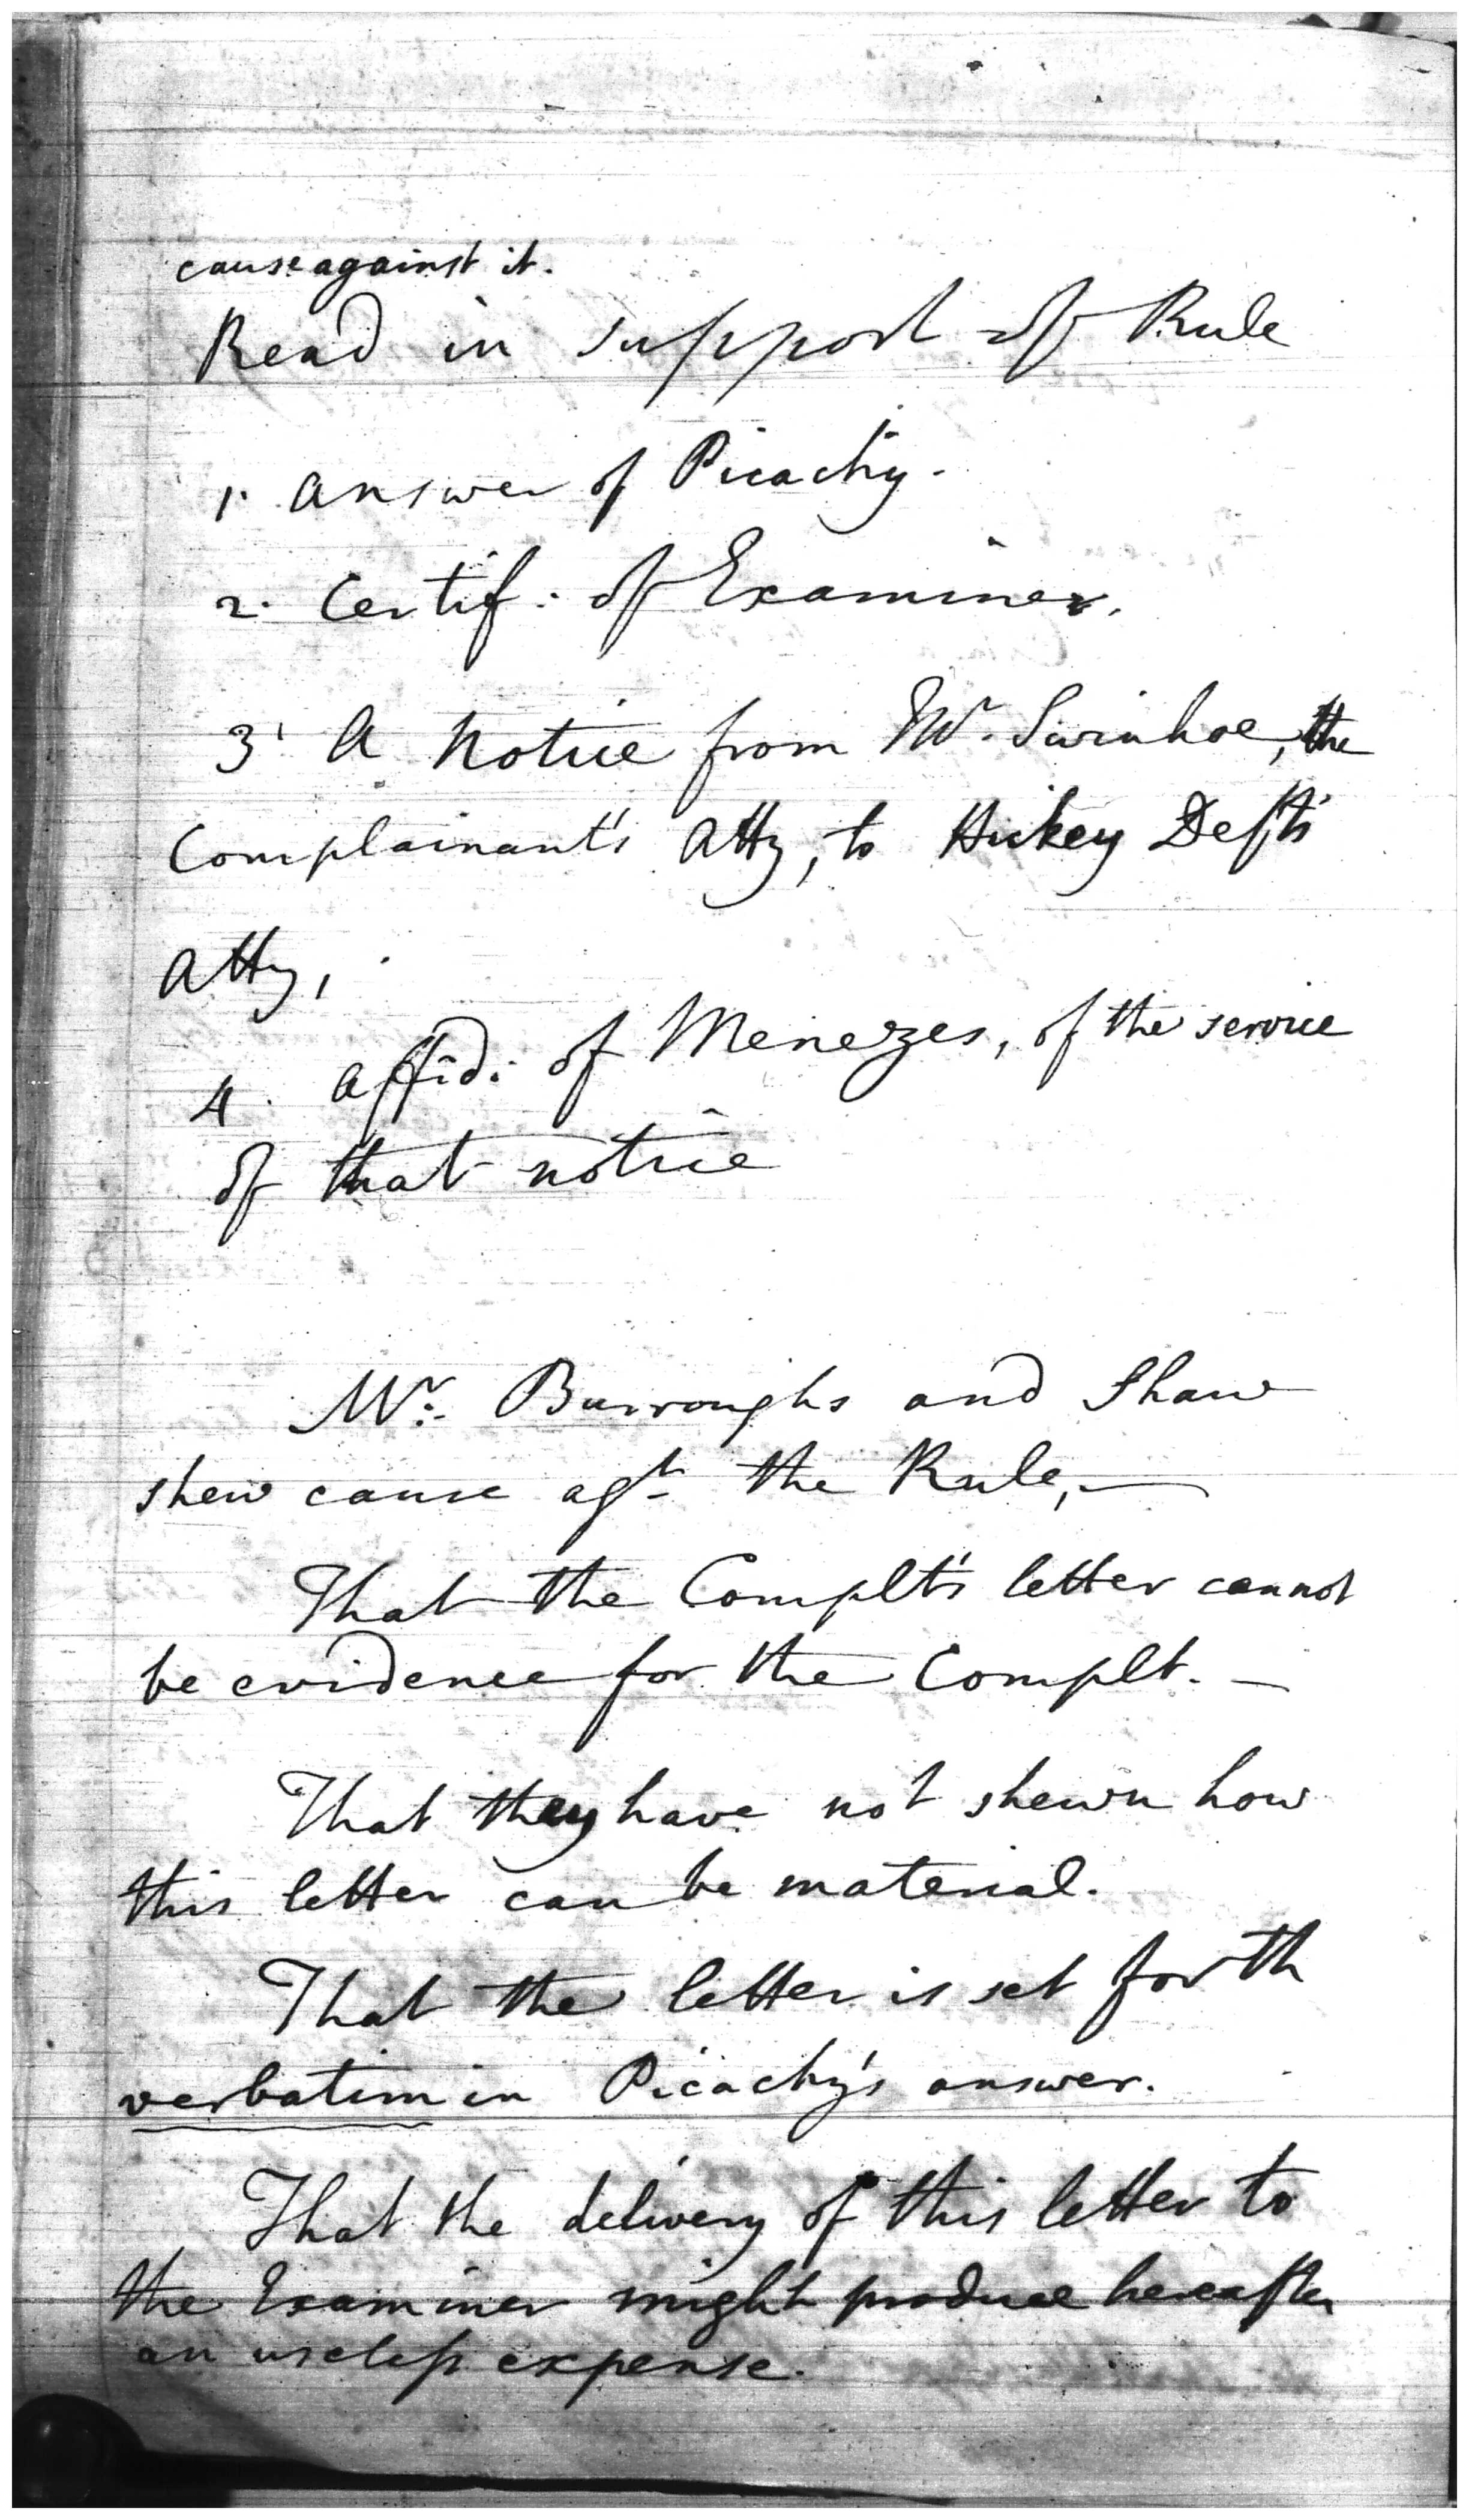 cause against it.
Read in support of Rule
1. Answer of Picachy.
2. Certif: of Examiner.
3. A Notice from Mr. Swinhoe, the
Complainant's Atty, to Hickey Deft's
Atty,
4. Affid: of Menezes, of the service
of that notice
Mr. Burroughs and Shaw
shew cause agt. the Rule, —
That the Complt's letter cannot
be evidence for the Complt. —
That they have not shewn how
this letter can be material.
That the letter is set forth
verbatim in Picachy's answer.
That the delivery of this letter to
the Examiner might produce hereafter
an useless expense.